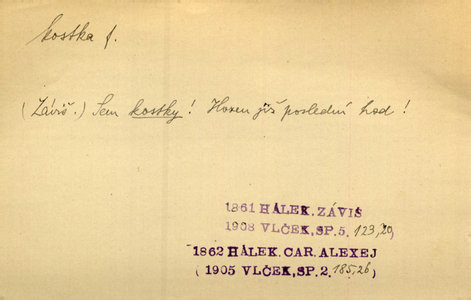 kostka f.
(Záviš.) Sem kostky! Hozen již poslední hod!
1861 HÁLEK.ZÁVIŠ
1908 VLČEK,SP.5. 123,20
1862 HÁLEK.CAR.ALEXEJ
(1905 VLČEK,SP.2. 185,26)